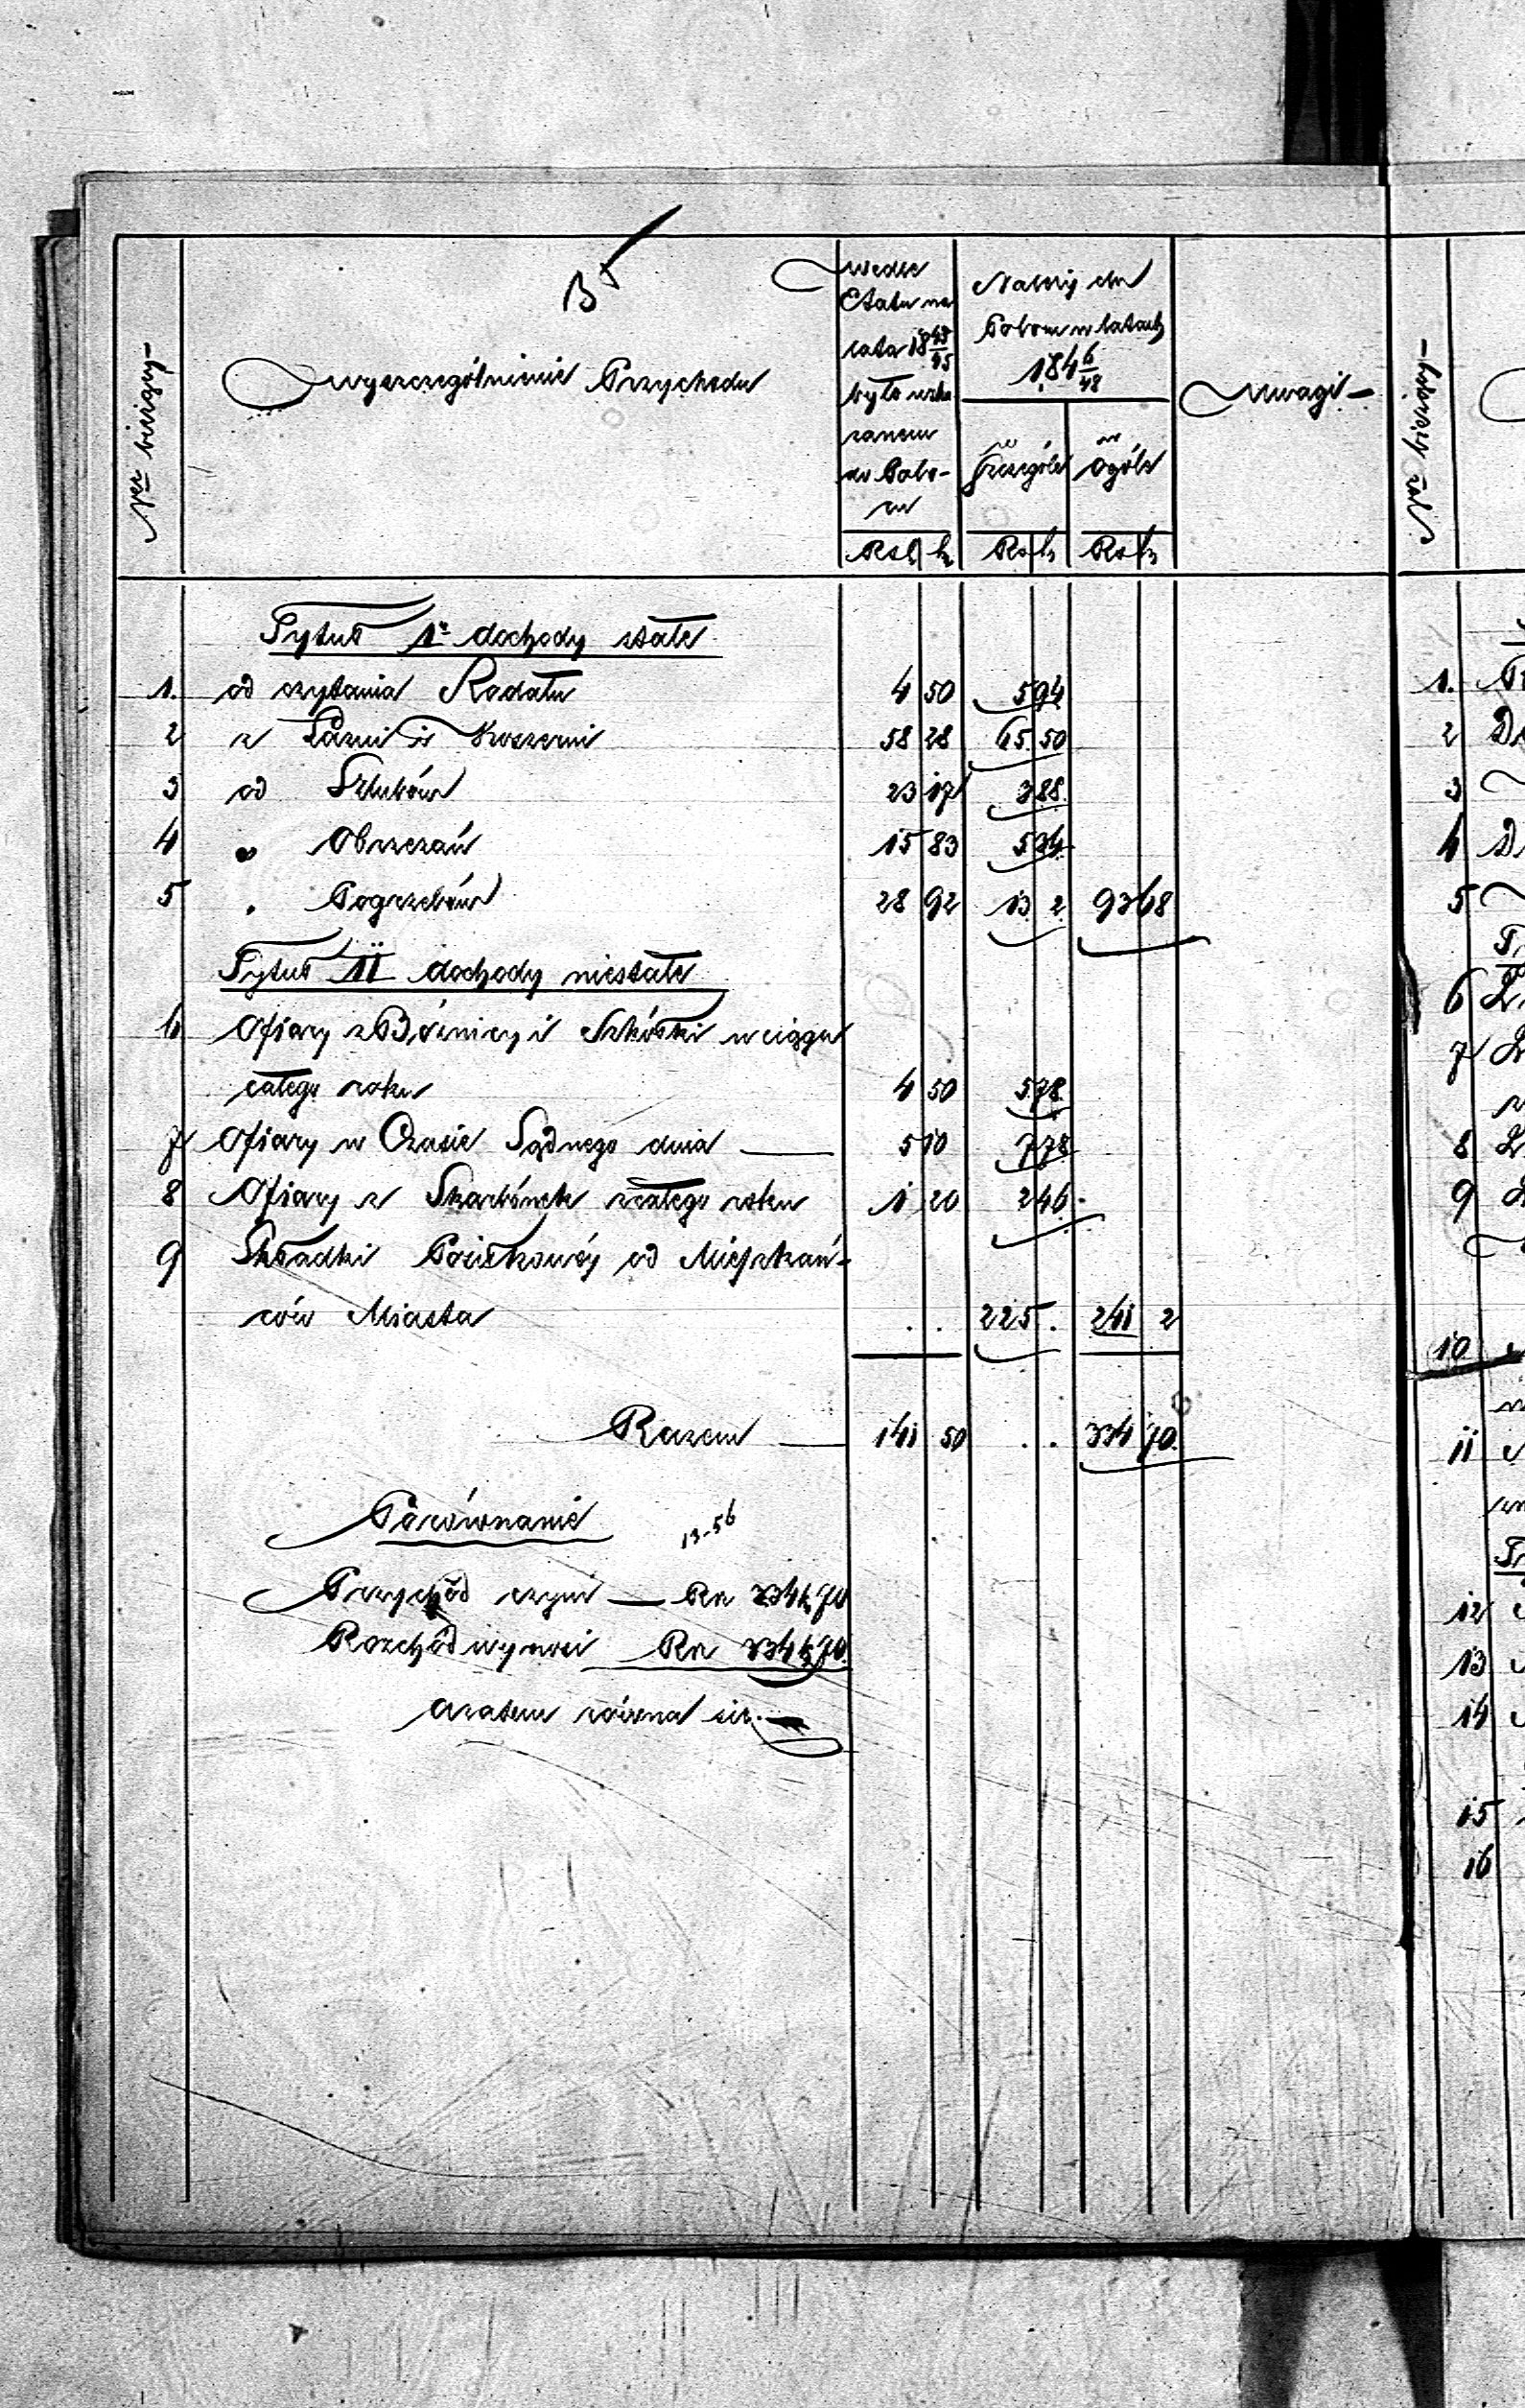 B
Ner bieżący
Wyszczególnienie Przychodu
Wedle
Etatu na
lata 18 43/45
było wska
zanem
do Pobo-
ru
Należy do
Poboru w latach
184 6/48
w Szczególe
w Ogóle
Uwagi
Rsl k Rs k Rs k
Tytuł 1. dochody stałe
1. od czytania Rodału 4 50 5 94
2 z Łaźni i Koszerni 58 28 65 50
3 od Szlubów 23 17 3 88
4 " Obrzezań 15 83 5 34
5 " Pogrzebów 28 92 13 2 93 68
Tytuł II dochody niestałe
6 Ofiary z Bóźnicy i Szkółki w ciągu
całego roku 4 50 5 78
7 Ofiary w Czasie Sądnego dnia — 5 10 7 78
8 Ofiary z Skarbonek z całego roku 1 20 2 46
9 Składki Posiłkowéj od Mieszkań-
ców Miasta . . 225 . 241 2
Razem — 141 50 . . 334 70
Porównanie 13-56
Przychód czyni — Rsr 334 k 70
Rozchód wynosi Rsr 334 k 70
a zatem równa się.
Ner bieżący
1.
2
3
4
5
6
7
8
9
10
11
12
13
14
15
16